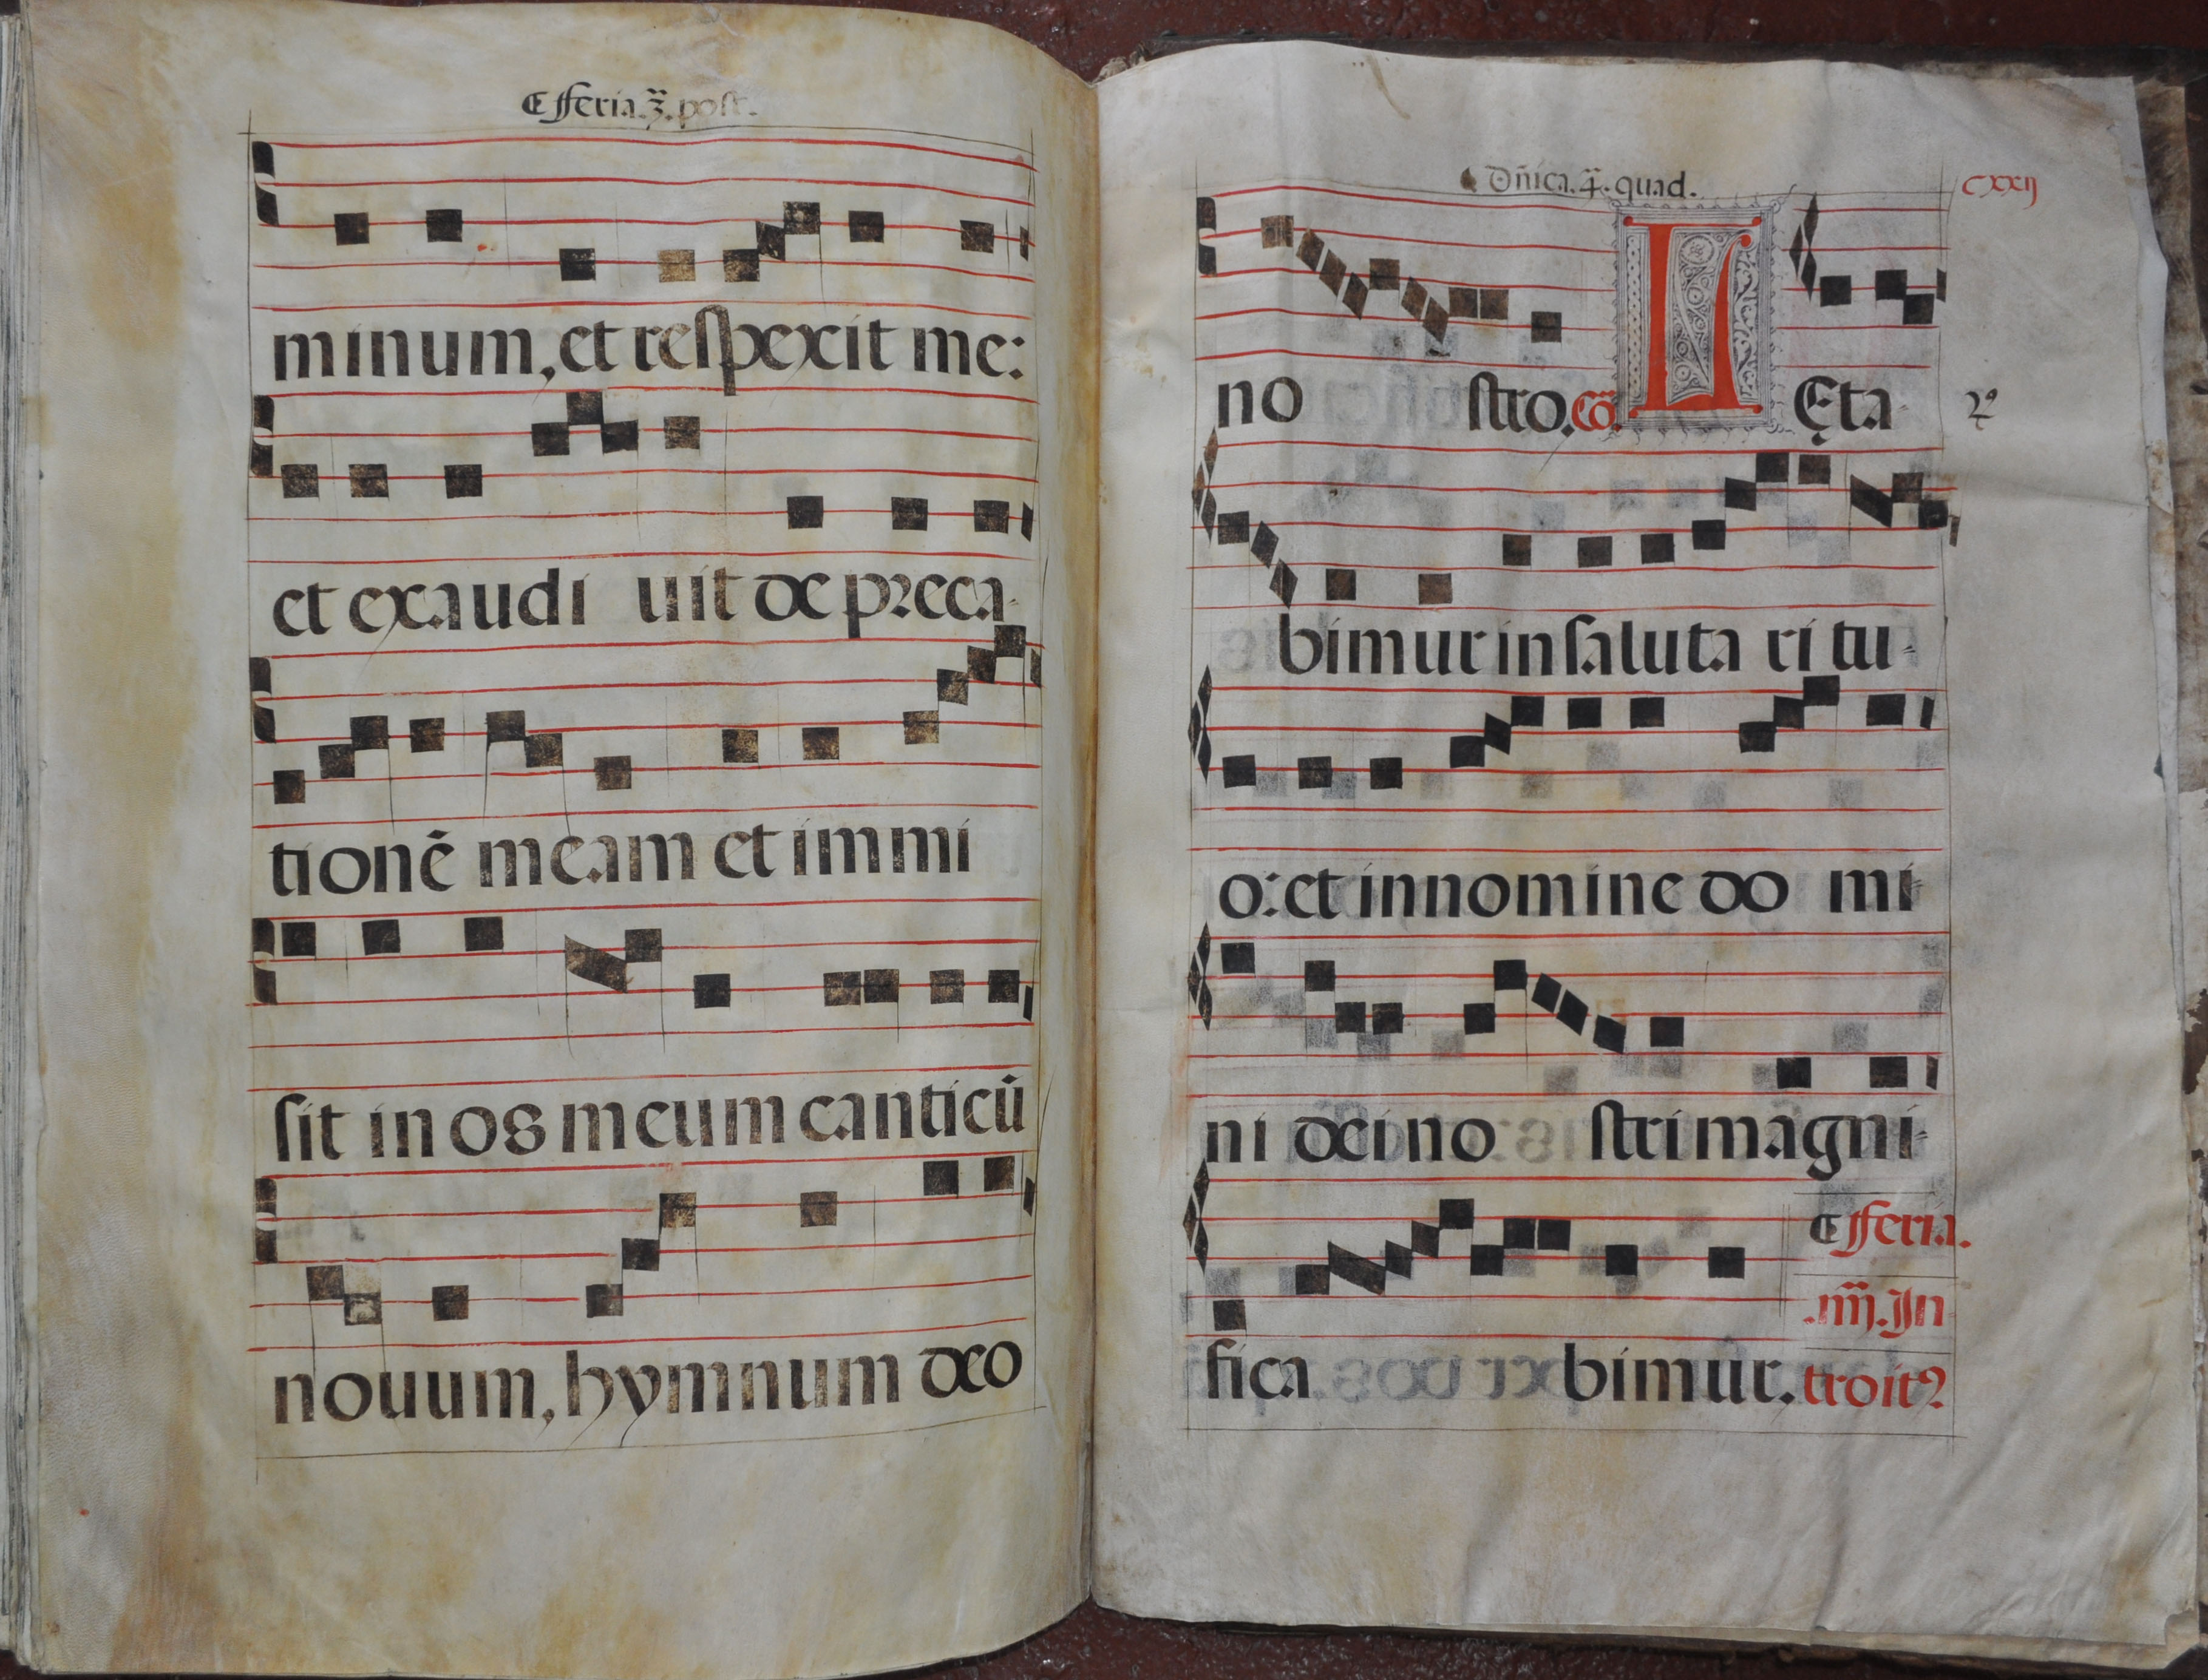 Fferia.3.post.
minum, et respexit me:
et exaudi uit de preca-
tionē meam et immi
sit in os meum canticū
nouum, hymnum deo
Dñica.4.quad. cxxij
no stro. cō. L Eta-
bimur in saluta ri tu-
o: et in nomine do mi-
ni dei no stri magni-
fica bimur.
Fferia.
.iiij. In
troit9